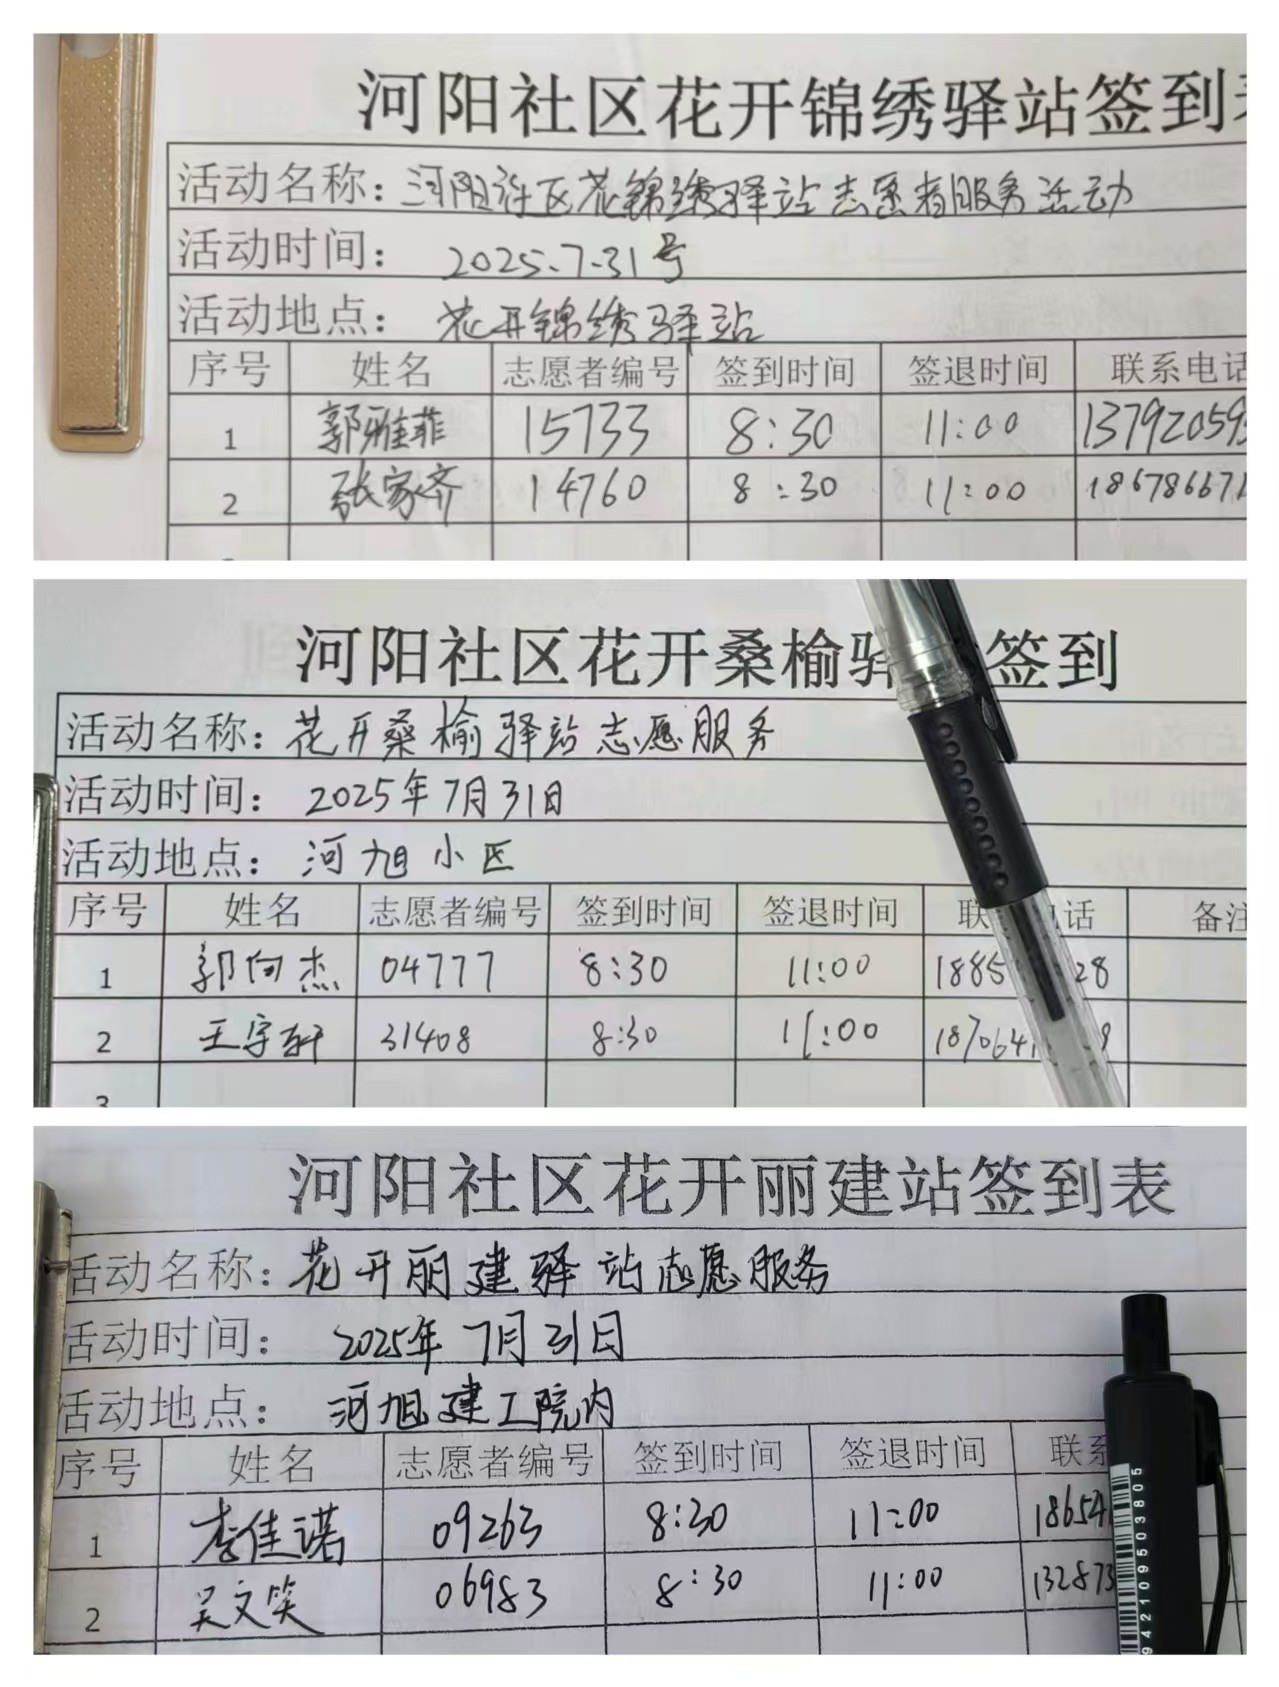 河阳社区花开锦绣驿站签到
活动名称：河阳社区花锦绣驿站志愿者服务活动
活动时间： 2025.7.31号
活动地点： 花开锦绣驿站
序号 姓名 志愿者编号 签到时间 签退时间 联系电话
1 郭雅菲 15733 8:30 11:00 13792059
2 张家齐 14760 8:30 11:00 186786671
河阳社区花开桑榆驿 签到
活动名称：花开桑榆驿站志愿服务
活动时间： 2025年7月31日
活动地点： 河旭小区
序号 姓名 志愿者编号 签到时间 签退时间 联 电话 备注
1 郭向杰 04777 8:30 11:00 1885 28
2 王宇轩 31408 8:30 11:00 1870641 9
3
河阳社区花开丽建站签到表
活动名称：花开丽建驿站志愿服务
活动时间： 2025年7月31日
活动地点： 河旭建工院内
序号 姓名 志愿者编号 签到时间 签退时间 联系
1 李佳诺 09263 8:30 11:00 18654
2 吴文笑 06983 8:30 11:00 132873
942109503805